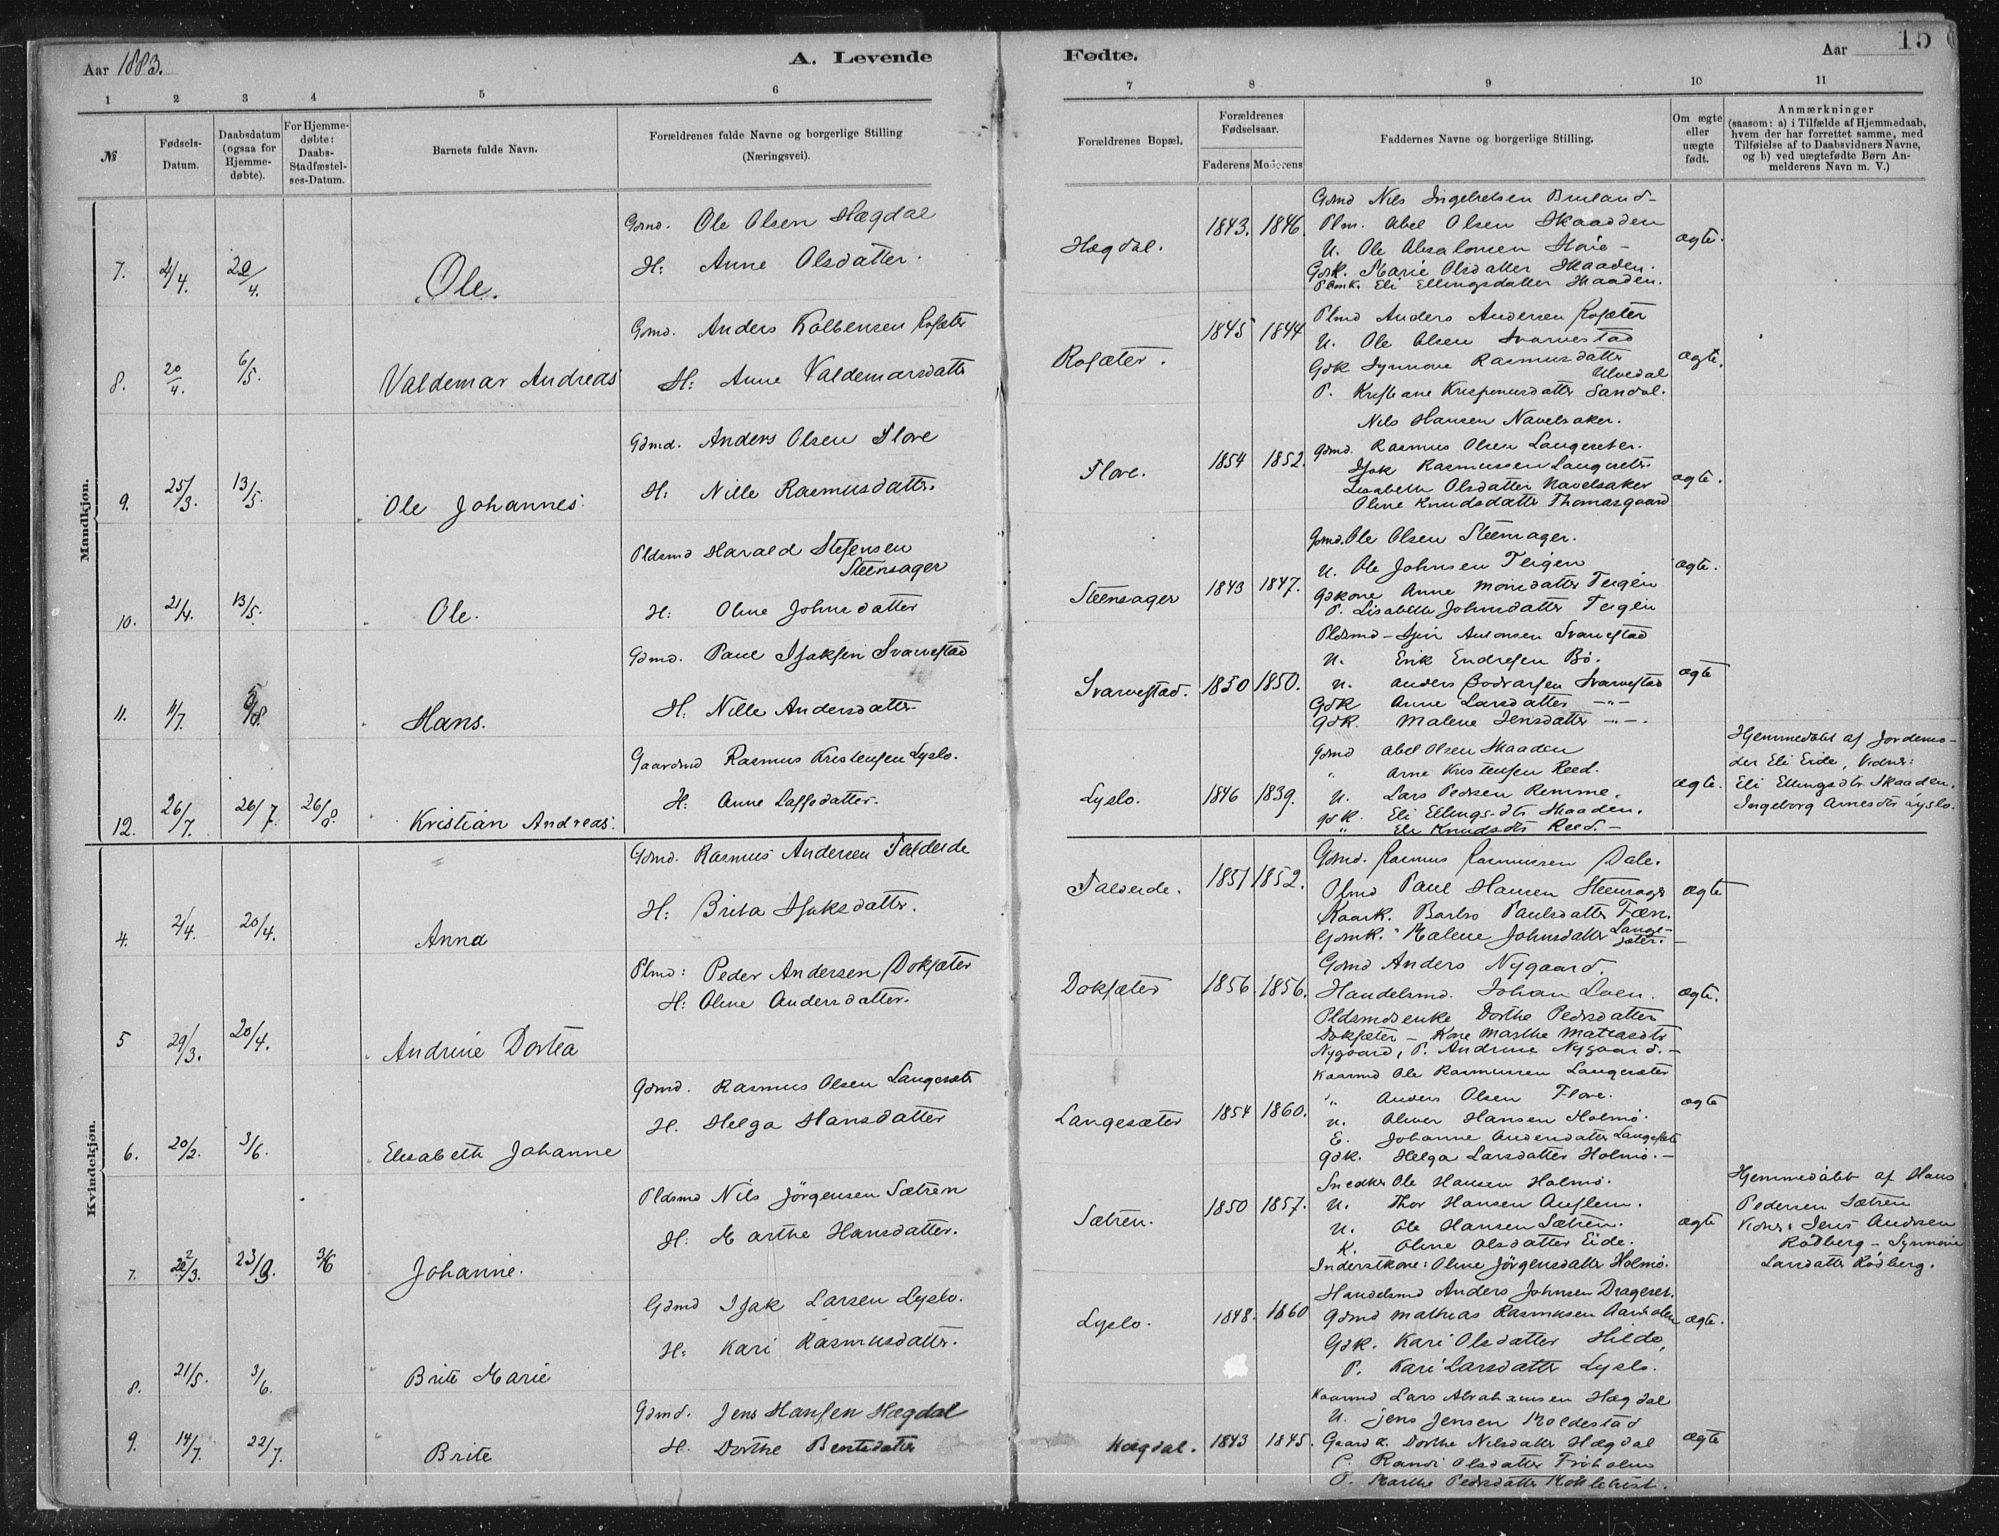 Aar 1883.
A. Levende
Fødte.
Aar
15
1 2 3 4 5 6 7 8 9 10 11
№
Fødsels-
Datum.
Daabsdatum
(ogsaa for
Hjemme-
døbte).
For Hjemme-
døbte:
Daabs-
Stadfæstel-
ses-Datum.
Barnets fulde Navn.
Forældrenes fulde Navne og borgerlige Stilling
(Næringsvei).
Forældrenes Bopæl.
Forældrenes
Fødselsaar.
Faderens Moderens
Faddernes Navne og borgerlige Stilling.
Om ægte
eller
uægte
født.
Anmærkninger
(saasom: a) i Tilfælde af Hjemmedaab,
hvem der har forrettet samme, med
Tilføielse af to Daabsvidners Navne,
og b) ved uægtefødte Børn An-
melderens Navn m. V.)
Mandkjøn.
7. 2/4. 20/4. Ole.
Gmd. Ole Olsen Hægdal
H: Anne Olsdatter.
Hægdal. 1843. 1846.
Gmd Nils Ingebretsen Bruland
Plm. Abel Olsen Skaadden
U. Ole Absalomsen Hoie
Gdk. Marie Olsdatter Skaaden.
Eli Ellingsdatter Skaaden.
ægte.
8. 20/4. 6/5. Valdemar Andreas
Gmd. Anders Kolbensen Rosæter
H: Anne Valdemarsdatter
Rosæter. 1845 1844
Plmd Anders Andersen Rosæter
U. Ole Olsen Svarvestad
Gdk Synnove Rasmusdatter
Ulvedal
P. Kristiane Krispinusdatter Sandal.
ægte.
9. 25/3. 13/5. Ole Johannes.
Gdmd. Anders Olsen Flore
H: Nille Rasmusdatter.
Flore. 1854 1852.
Nils Hansen Navelsaker.
Gdmd. Rasmus Olsen Langeseter.
Isak Rasmussen Langseter
Lisabeth Olsdatter Navelsaker
Oline Knudsdatter Thomasgaard
ægte.
10. 21/4. 13/5. Ole.
Pldsmd Harald Stefensen
Steensager
H: Oline Johnsdatter
Steensager 1843 1847.
Gdmd. Ole Olsen Steensager.
U. Ole Johnsen Teigen
Gdkone Anne Monsdatter Teigen
P. Lisabeth Johnsdatter Teigen
ægte.
11. 11/7. 5/8. Hans.
Gdmd. Paul Isaksen Svarvestad
H: Nille Andersdatter
Svarvestad. 1850 1850.
Pldsmd Antonsen Svarvestad
U. Erik Endresen Bø.
U. Anders Bodvarsen Svarvestad
Gdk Anne Larsdatter —"—
Gdk. Malene Jensdatter —"—.
ægte
12. 26/7. 26/7. 26/8. Kristian Andreas.
Gaardmd Rasmus Kristensen Lyslo.
H: Anne
Lyslo. 1846 1839.
Gdmd Abel Olsen Skaaden
" Arne Kristensen Reed.
U. Lars Pedersen Remme.
Gdk. Eli Ellingsdtr Skaaden.
" Eli Knudsdtr Reed.
ægte.
Hjemmedøbt af Jordemo-
der Eli Eide, Vidner:
Eli Ellingsdtr Skaaden.
Ingeborg Arnesdtr Lyslo.
Kvindekjøn.
4. 2/4. 20/4. Anna
Gdmd. Rasmus Andersen Taldeide
H: Brita Isaksdatter.
Taldeide. 1851 1852.
Gdmd. Rasmus Rasmussen Dale.
Plmd Paul Hansen Steensager
Kaark. Barbro Paulsdatter Fæn.
Gdmk. Malene Johnsdatter Lange-
sæter.
ægte
5 29/3. 20/4. Andrine Dortea
Plmd: Peder Andersen Doksæter
H: Oline Andersdatter.
Doksæter 1856. 1856.
Gdmd Anders Nygaard.
Handelsmd. Johan Loen.
Pldsmdsenke Dorthe Pedersdatter
Doksæter — Kone Marthe Mattiasdtr
Nygaard, P. Andrine Nygaard.
ægte.
6. 20/2. 3/6. Elisabeth Johanne
Gdmd. Rasmus Olsen Langesæter
H. Helga Hansdatter
Langesæter 1854 1860.
Kaarmd Ole Rasmussen Langesæter
" Anders Olsen Flore.
U. Oliver Hansen Holmø.
E. Johanne Andersdatter Langesæter
Gdk. Helga Larsdatter Holmø.
ægte
7. 22/3. 23/3. 3/6 Johanne.
Pldsmd Nils Jörgensen Sætren
H: Marthe Hansdatter.
Sætren. 1850 1857.
Snedker Ole Hansen Holmø.
U. Thor Hansen Auflem.
U. Ole Hansen Sætren.
K. Oline Olsdatter Eide.
Inderstkone: Oline Jörgensdatter Holmø.
ægte
Hjemmedöbt af Hans
Pedersen Sætren
Vidner: Jens Andersen
Rödberg — Synnöve
Larsdatter Rödberg.
8. 21/5. 3/6. Brite Marie
Gdmd Isak Larsen Lyslo.
H: Kari Rasmusdatter.
Lyslo. 1848. 1860
Handelsmd Anders Johnsen Drageset.
Gdmd Mathias Rasmussen Aarholen
Gdk. Kari Olsdatter Hilde,
P. Kari Larsdatter Lyslo.
ægte.
9. 14/7. 22/7. Brite
Gdmd. Jens Hansen Hægdal
H. Dorthe Bentsdatter
Hægdal. 1843 1845.
Kaarmd Lars Abrahamsen Hægdal
U. Jens Jensen Moldestad
Gaardk. Dorthe Nilsdatter Hægdal
P. Randi Olsdatter Friholm
P. Marthe Pedersdatter
ægte